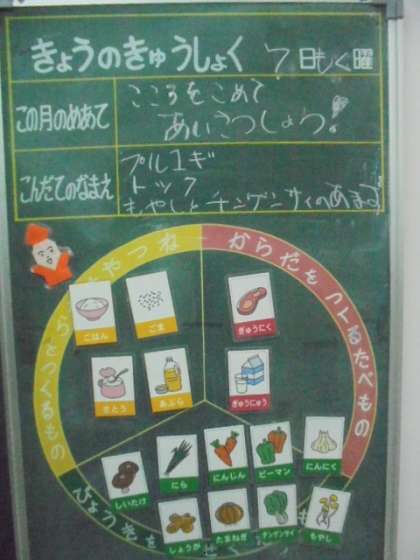 きょうのきゅうしょく 7日もく曜
この月のめあて
こころをこめて
あいさつしよう!
こんだてのなまえ
プルコギ
トック
もやしとチンゲンサイのあまず
やつね
からだをつくるたべもの
をつくるもの
ごはん
ごま
ぎゅうにく
さとう
あぶら
ぎゅうにゅう
しいたけ
にら
にんじん
ピーマン
にんにく
しょうが
たまねぎ
チンゲンサイ
もやし
びょう
を